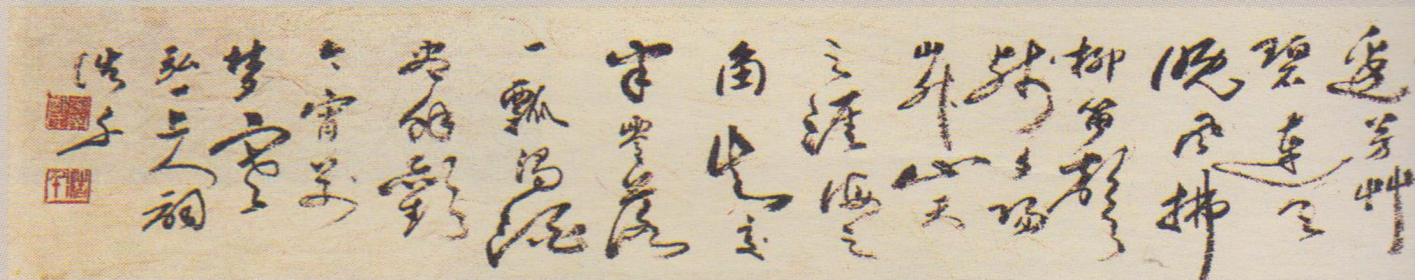 邊芳艸
碧連天
晚风拂
柳笛聲
殘夕陽
山外山天
之涯海之
角知交
半零落
一瓢濁酒
盡餘歡
今宵别
梦寒
弘一上人词
浩千